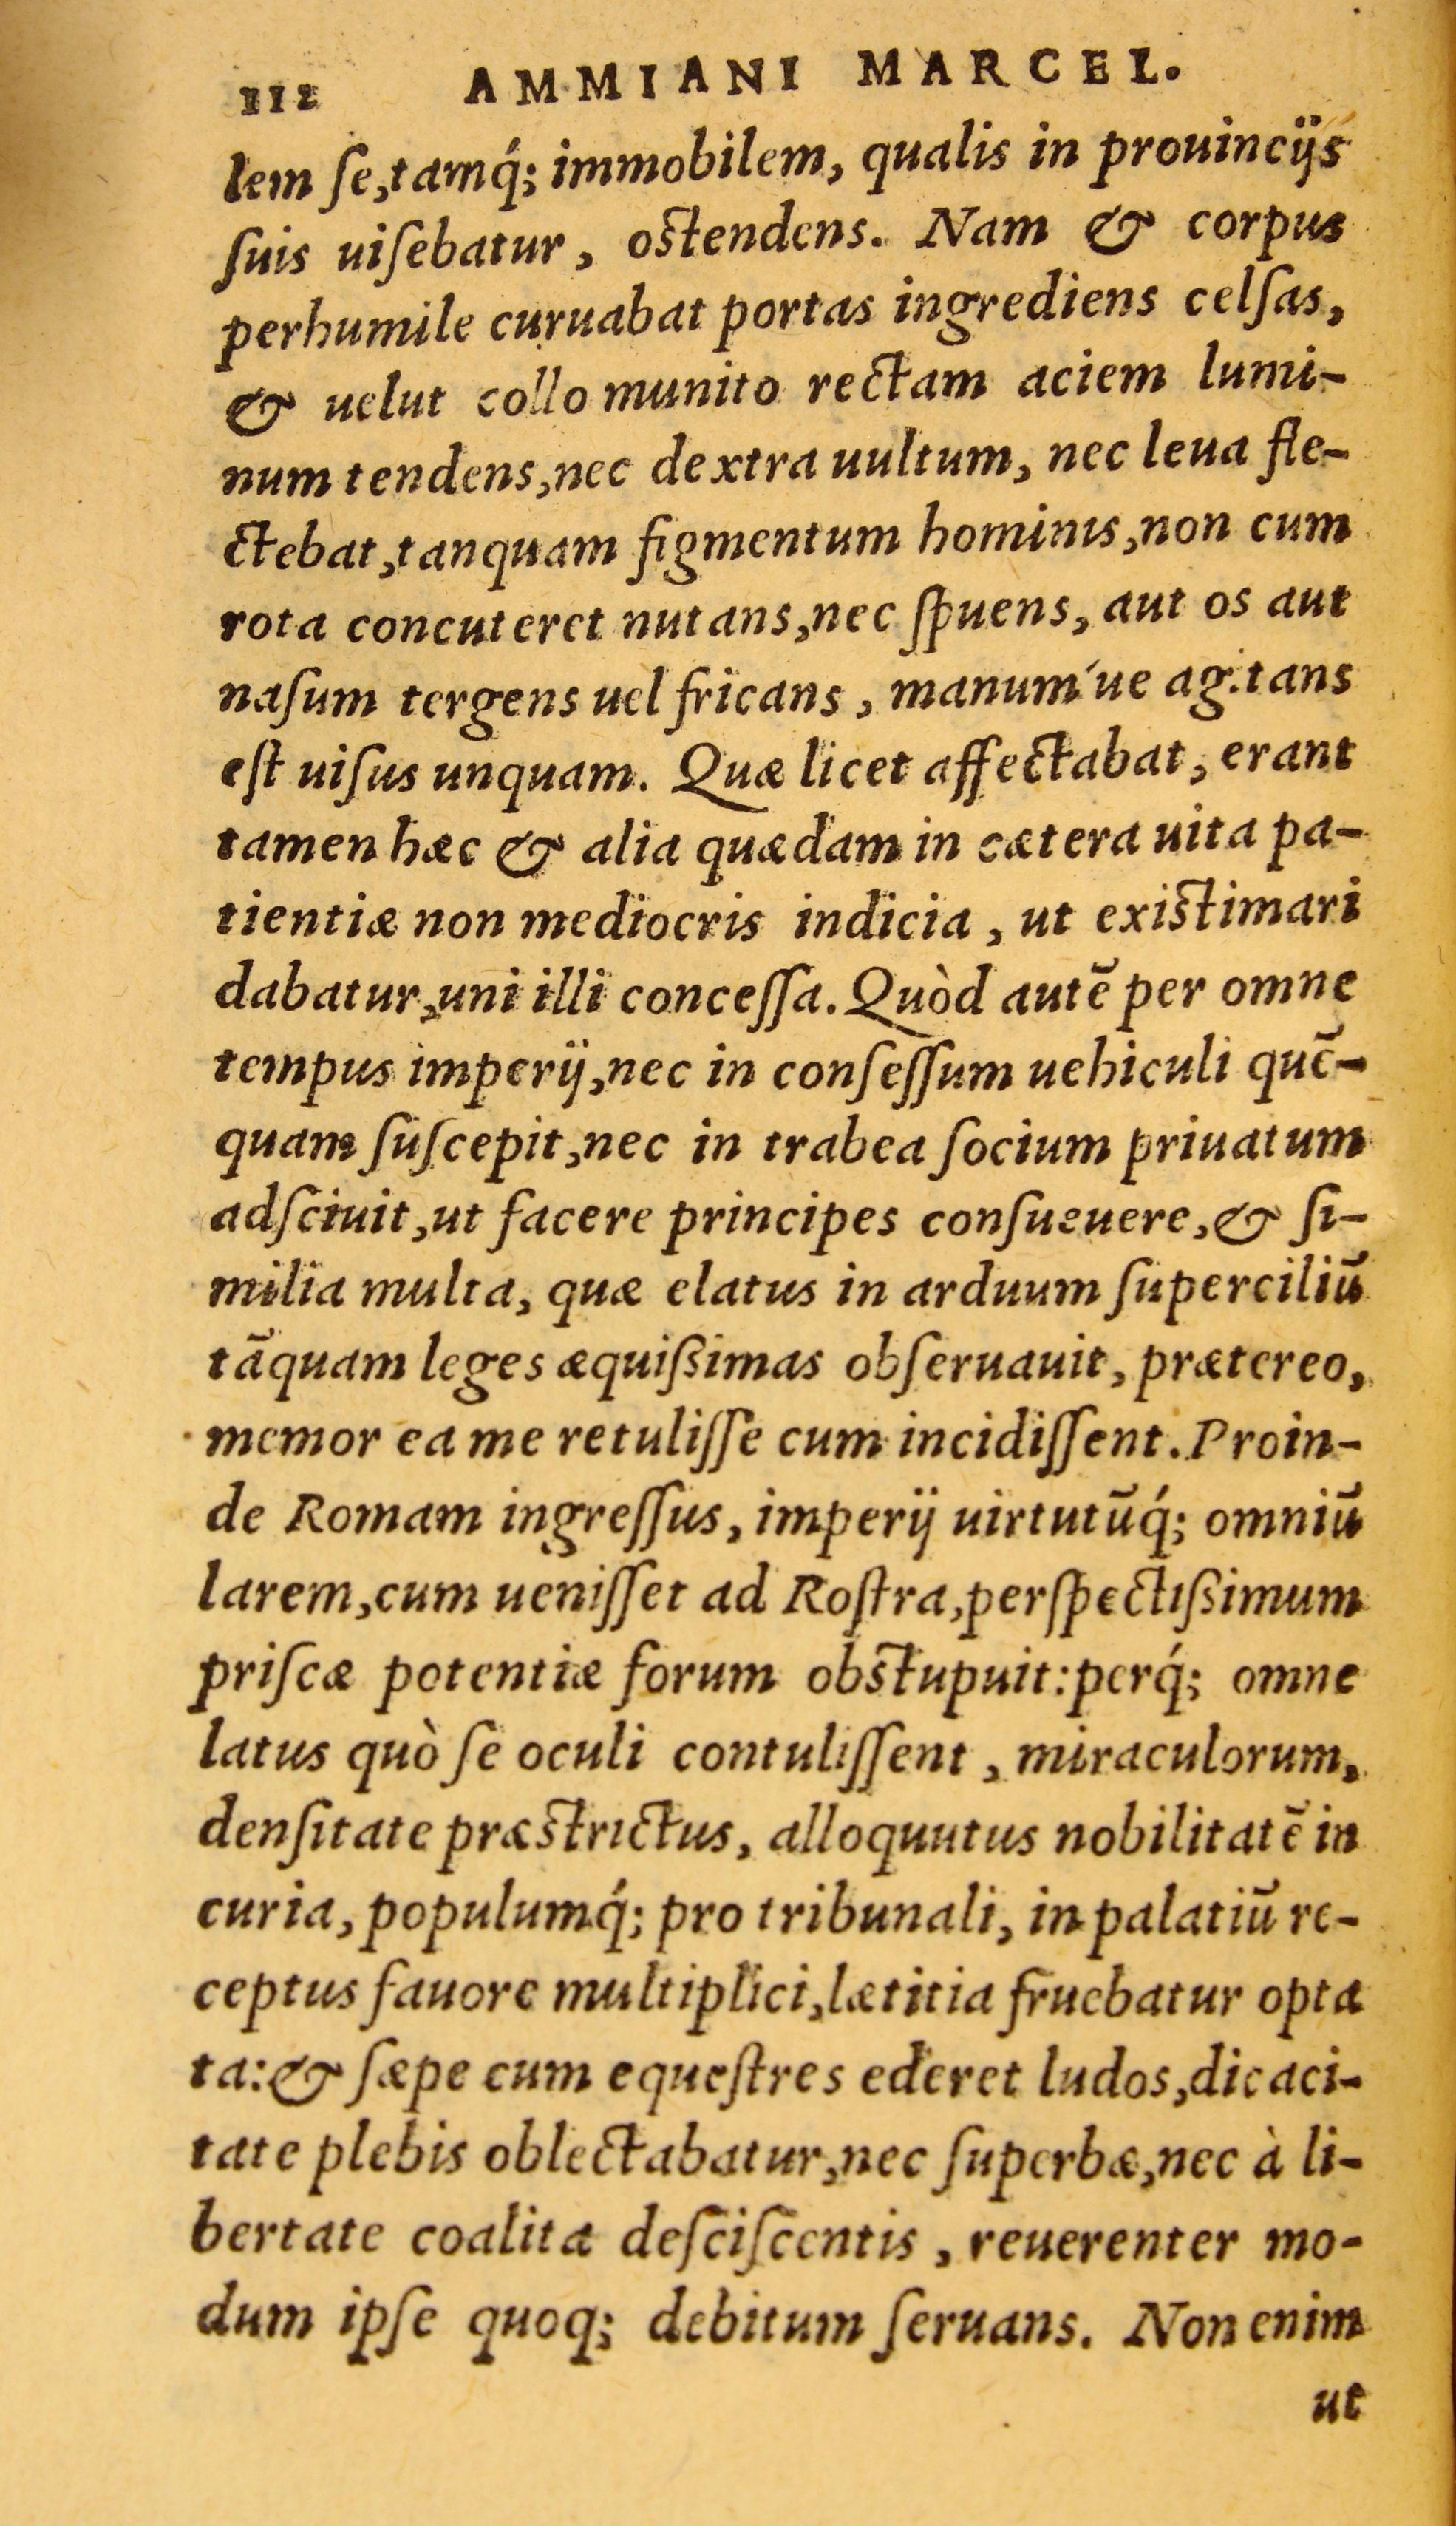 112 AMMIANI MARCEL.
lem ſe, tamq́; immobilem, qualis in prouincijs
ſuis uiſebatur, oſtendens. Nam & corpus
perhumile curuabat portas ingrediens celſas,
& uelut collo munito rectam aciem lumi-
num tendens, nec dextra uultum, nec leua fle-
ctebat, tanquam figmentum hominis, non cum
rota concuteret nutans, nec ſpuens, aut os aut
naſum tergens uel fricans, manum'ue agitans
eſt uiſus unquam. Quæ licet affectabat, erant
tamen hæc & alia quædam in cætera uita pa-
tientiæ non mediocris indicia, ut exiſtimari
dabatur, uni illi conceſſa. Quòd autē per omne
tempus imperij, nec in conſeſſum uehiculi quē-
quam ſuſcepit, nec in trabea ſocium priuatum
adſciuit, ut facere principes conſueuere, & ſi-
milia multa, quæ elatus in arduum ſuperciliū
tāquam leges æquiſsimas obſeruauit, prætereo,
memor ea me retuliſſe cum incidiſſent. Proin-
de Romam ingreſſus, imperij uirtutūq́; omniū
larem, cum ueniſſet ad Roſtra, perſpectiſsimum
priſcæ potentiæ forum obſtupuit: perq́; omne
latus quò ſe oculi contuliſſent, miraculorum,
denſitate præſtrictus, alloquutus nobilitatē in
curia, populumq́; pro tribunali, in palatiū re-
ceptus fauore multiplici, lætitia fruebatur opta
ta: & ſæpe cum equeſtres ederet ludos, dicaci-
tate plebis oblectabatur, nec ſuperbæ, nec à li-
bertate coalita deſciſcentis, reuerenter mo-
dum ipſe quoq; debitum ſeruans. Non enim
ut